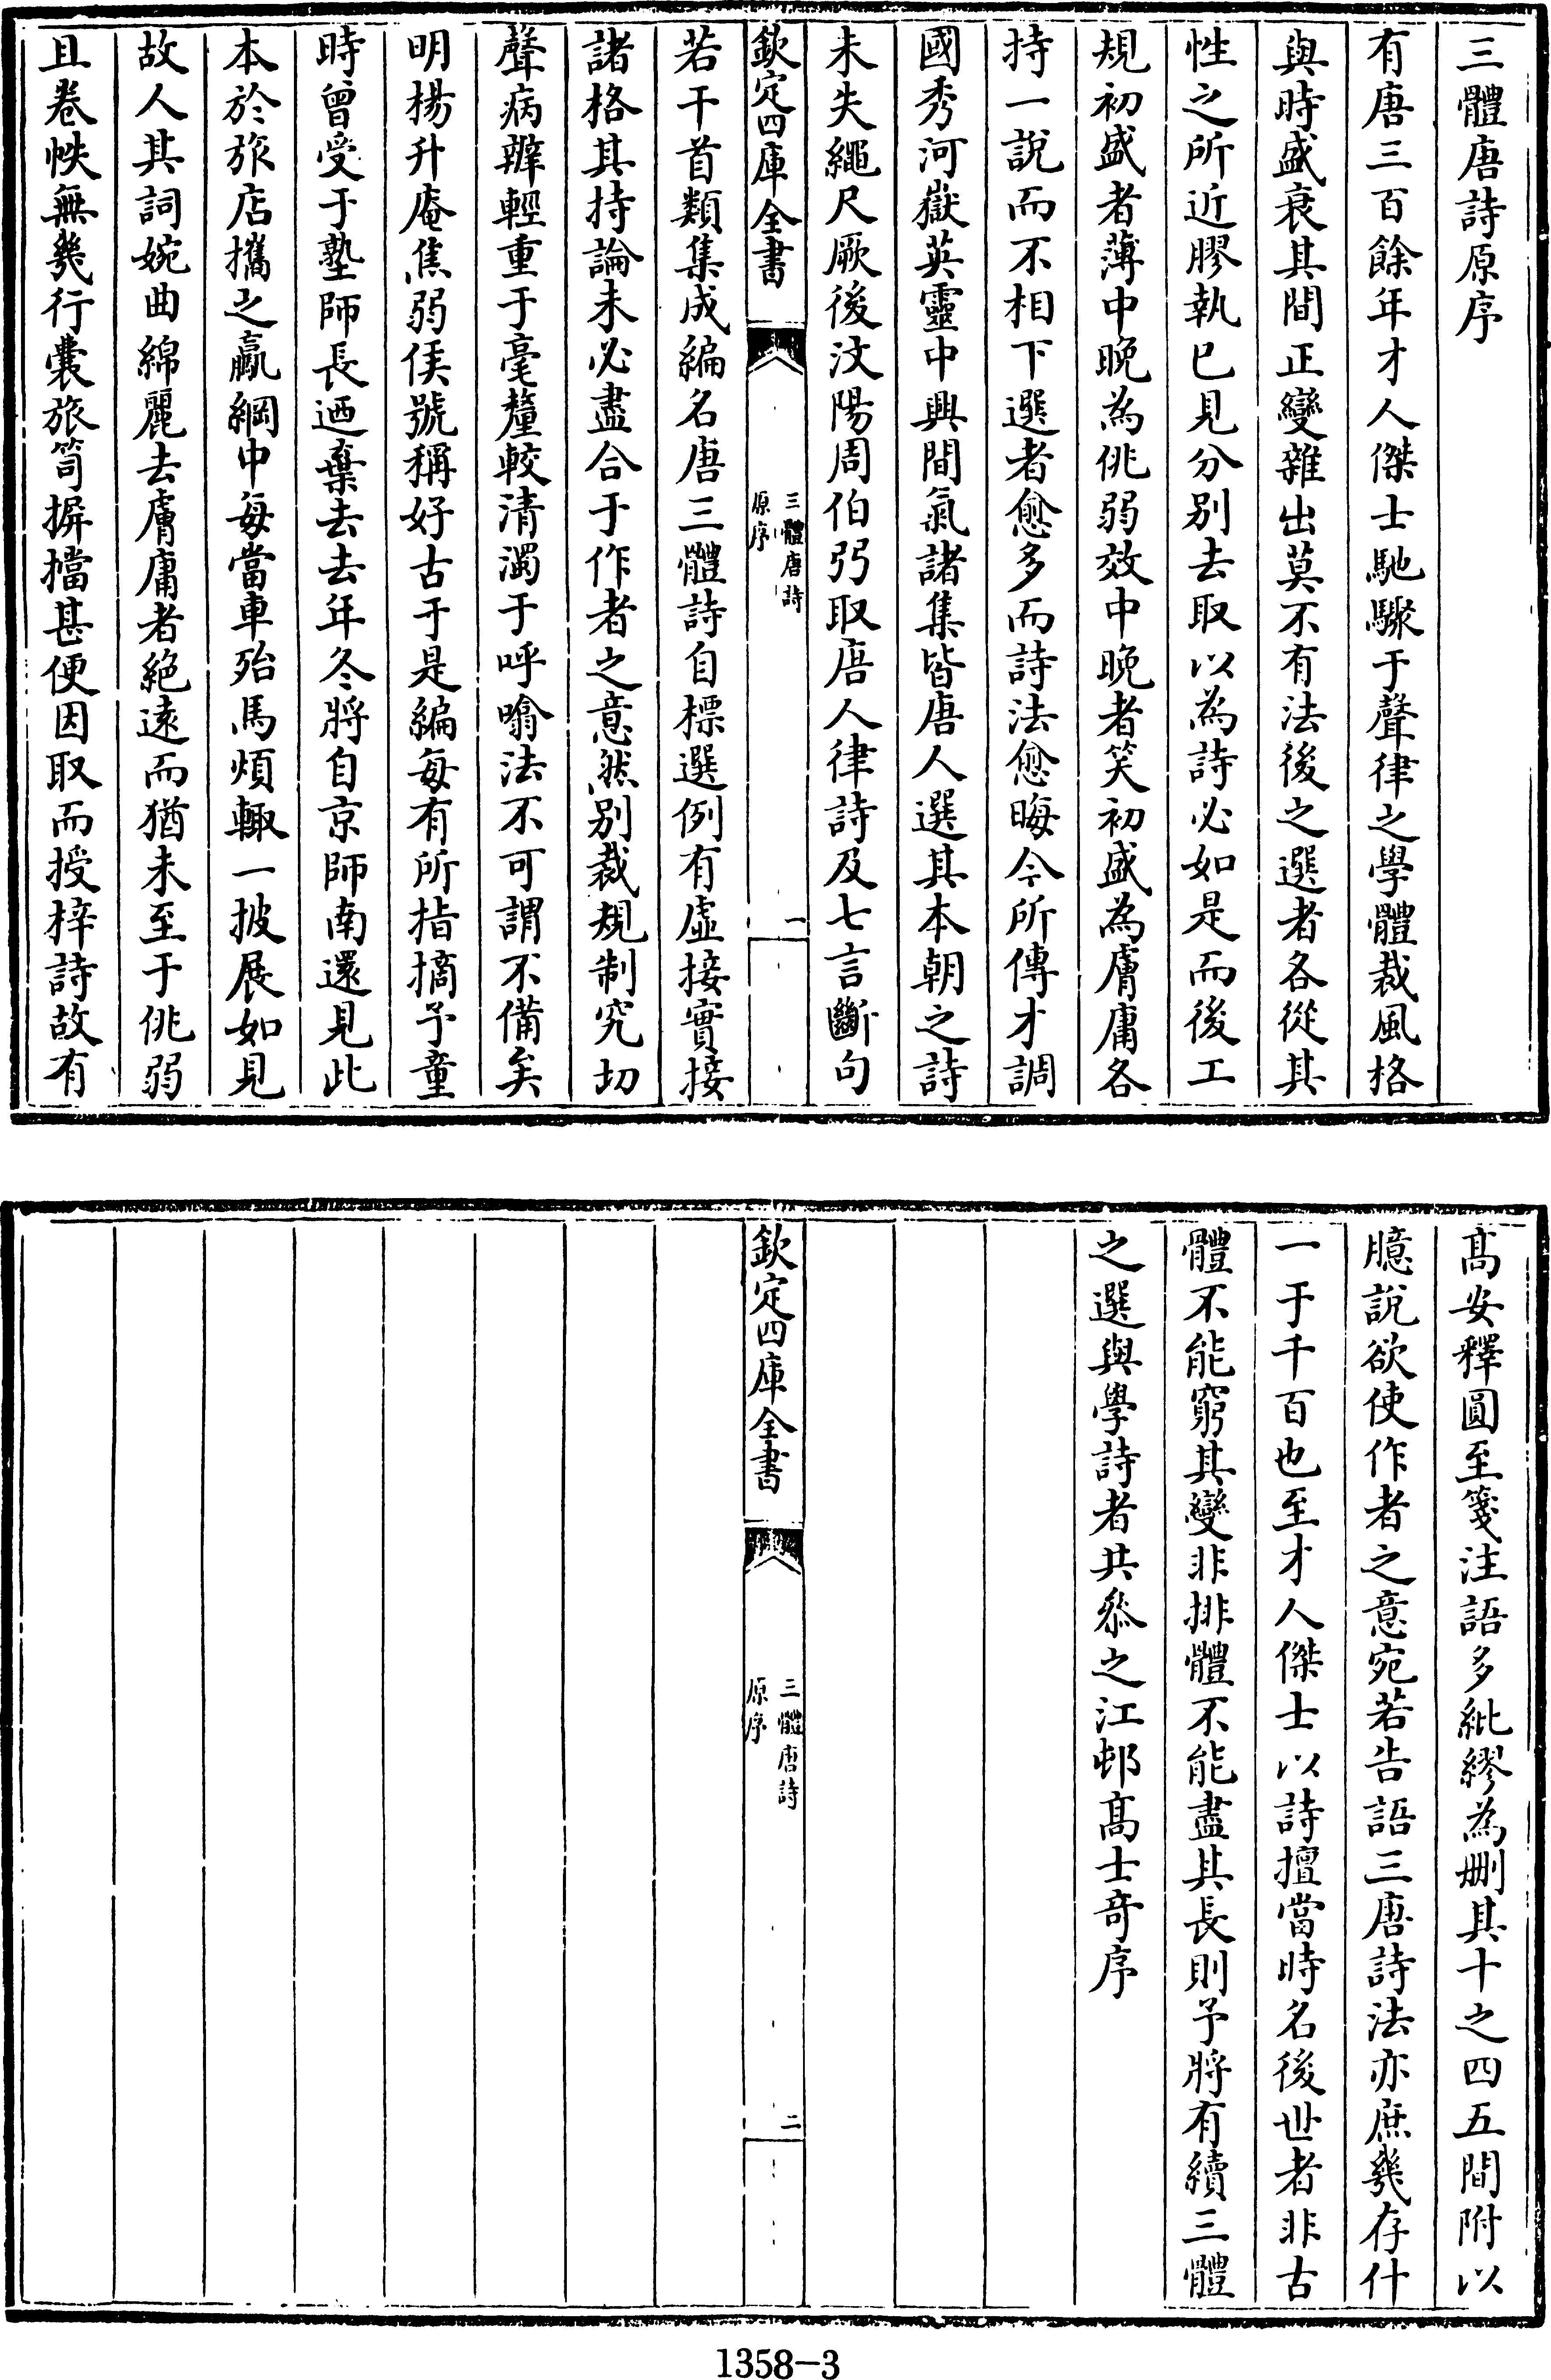 三體唐詩原序
有唐三百餘年才人傑士馳驟于聲律之學體裁風格
與時盛衰其間正變雜出莫不有法後之選者各從其
性之所近膠執已見分別去取以為詩必如是而後工
規初盛者薄中晚為佻弱效中晚者笑初盛為膚庸各
持一說而不相下選者愈多而詩法愈晦今所傳才調
國秀河嶽英靈中興間氣諸集皆唐人選其本朝之詩
未失繩尺厥後汶陽周伯弜取唐人律詩及七言斷句
欽定四庫全書
三體唐詩
原序
一
若干首類集成編名唐三體詩自標選例有虛接實接
諸格其持論未必盡合于作者之意然別裁規制究切
聲病辨輕重于毫釐較清濁于呼噏法不可謂不備矣
明楊升庵焦弱侯號稱好古于是編每有所指摘予童
時曾受于塾師長迺棄去去年冬將自京師南還見此
本於旅店攜之籝網中每當車殆馬煩輒一披展如見
故人其詞婉曲綿麗去膚庸者絕遠而猶未至于佻弱
且卷帙無幾行囊旅笥摒擋甚便因取而授梓詩故有
髙安釋圓至箋注語多紕繆為刪其十之四五間附以
臆說欲使作者之意宛若告語三唐詩法亦庶幾存什
一于千百也至才人傑士以詩擅當時名後世者非古
體不能窮其變非排體不能盡其長則予將有續三體
之選與學詩者共叅之江邨髙士奇序
欽定四庫全書
三體唐詩
原序
二
1358-3